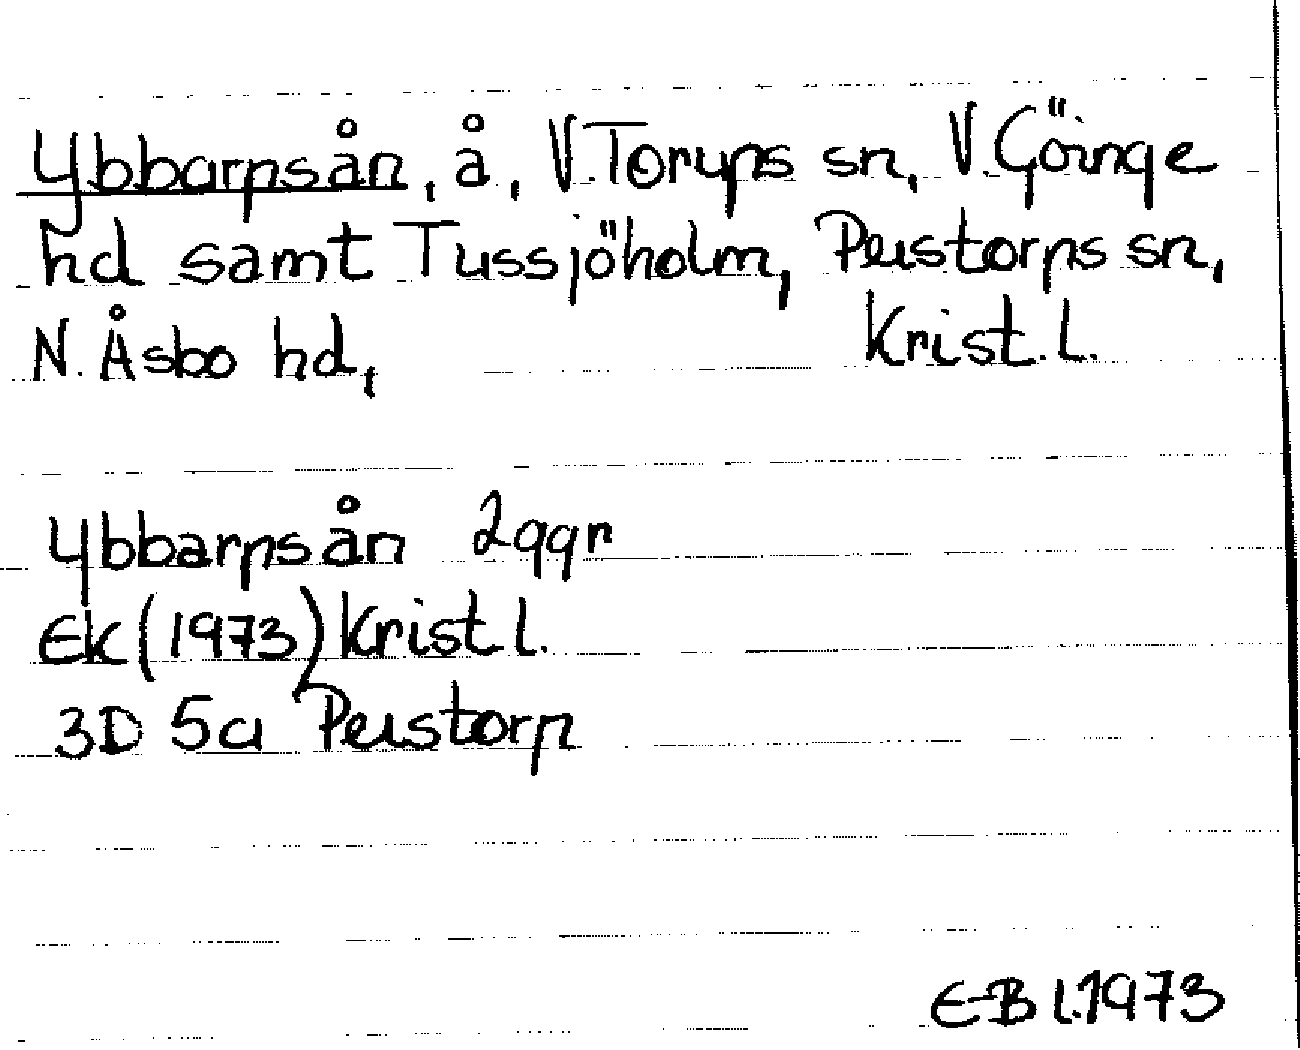 Ybbarpsån, å, V.Torups sn, V.Göinge
hd samt Tussjöholm, Perstorps sn,
N. Åsbo hd, Krist.l.
Ybbarpsån 2ggr
EK (1973) Krist.l.
3D 5a Perstorp
E-B l.1973